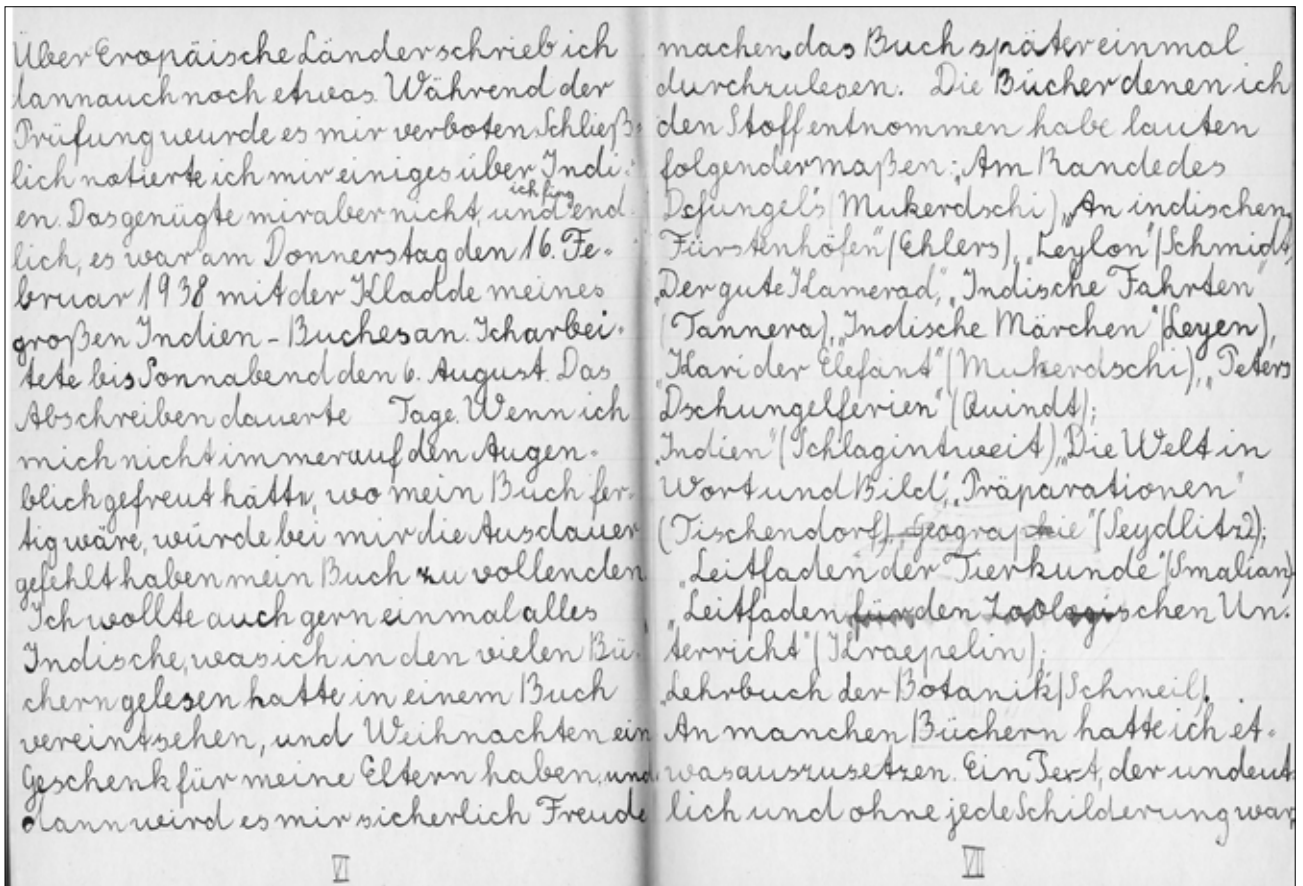 Über Eropäische Länder schrieb ich
dann auch noch etwas. Während der
Prüfung wurde es mir verboten. Schließ-
lich notierte ich mir einiges über Indi-
ich fing
en. Das genügte mir aber nicht, und end-
lich, es war am Donnerstag den 16. Fe-
bruar 1938 mit der Kladde meines
großen Indien-Buches an. Ich arbei-
tete bis Sonnabend den 6. August. Das
Abschreiben dauerte Tage. Wenn ich
mich nicht immer auf den Augen-
blick gefreut hätte, wo mein Buch fer-
tig wäre, würde bei mir die Ausdauer
gefehlt haben mein Buch zu vollenden
Ich wollte auch gern einmal alles
Indische, was ich in den vielen Bü-
chern gelesen hatte in einem Buch
vereint sehen, und Weihnachten ein
Geschenk für meine Eltern haben, und
dann wird es mir sicherlich Freude
VI
machen das Buch später einmal
durchzulesen. Die Bücher denen ich
den Stoff entnommen habe lauten
folgendermaßen: „Am Rande des
Dschungels" (Mukerdschi), „An indischen
Fürstenhöfen" (Ehlers), „Ceylon" (Schmidt),
„Der gute Kamerad", „Indische Fahrten"
(Tannera), „Indische Märchen" (Leyen),
„Kari der Elefant" (Mukerdschi), „Peters
Dschungelferien" (Quindt);
„Indien" (Schlagintweit), „Die Welt in
Wort und Bild", „Präparationen"
(Tischendorf), „Geographie" (Seydlitz 2);
„Leitfaden der Tierkunde" (Smalian)
„Leitfaden für den Zoologischen Un-
terricht" (Kraepelin);
„Lehrbuch der Botanik" (Schmeil).
An manchen Büchern hatte ich et-
was auszusetzen. Ein Text, der undeut-
lich und ohne jede Schilderung war,
VII